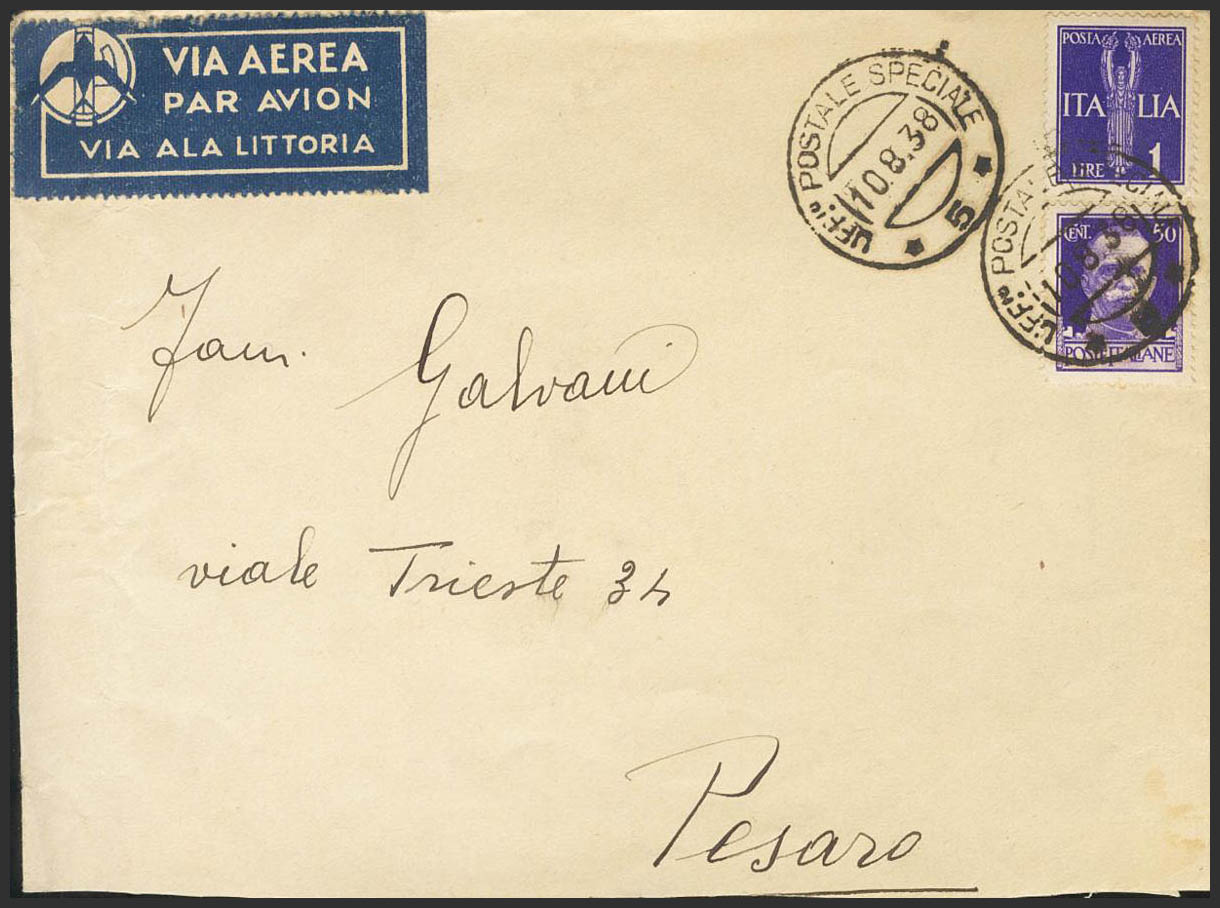 VIA AEREA
PAR AVION
VIA ALA LITTORIA
UFF.° POSTALE SPECIALE
10.8.38
5
POSTA AEREA
ITALIA
LIRE 1
UFF.° POSTALE SPECIALE
10.8.38
CENT. 50
POSTE ITALIANE
Fam. Galvani
viale Trieste 34
Pesaro